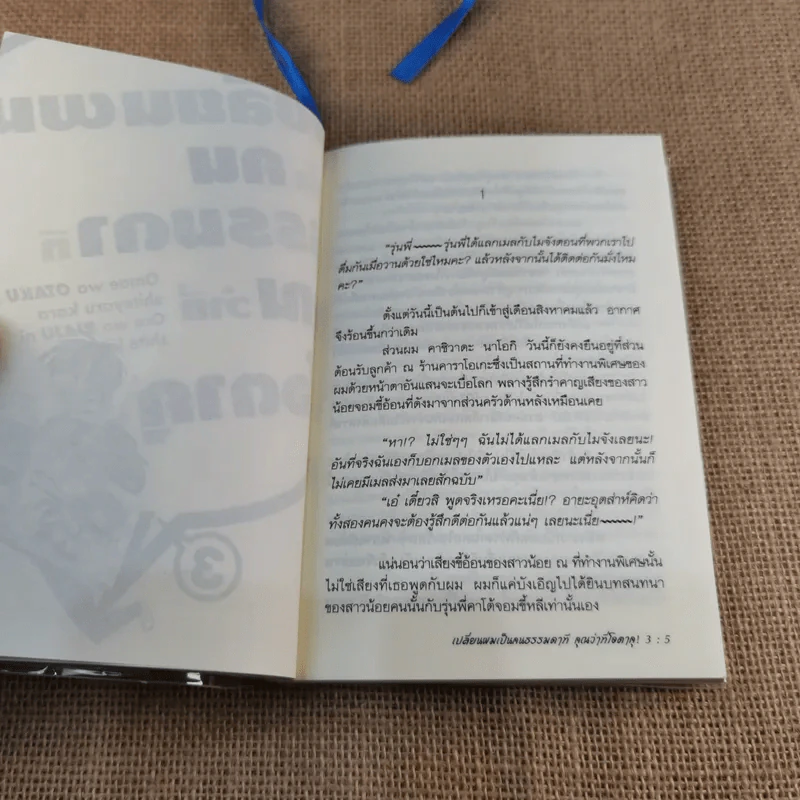 1
"รุ่นพี่ ~~~~~ รุ่นพี่ได้แลกเมลกับไมจังตอนที่พวกเราไป
ดื่มกันเมื่อวานด้วยใช่ไหมคะ? แล้วหลังจากนั้นได้ติดต่อกันมั่งไหม
คะ?"
ตั้งแต่วันนี้เป็นต้นไปก็เข้าสู่เดือนสิงหาคมแล้ว อากาศ
จึงร้อนขึ้นกว่าเดิม
ส่วนผม คาชิวาดะ นาโอกิ วันนี้ก็ยังคงยืนอยู่ที่ส่วน
ต้อนรับลูกค้า ณ ร้านคาราโอเกะซึ่งเป็นสถานที่ทำงานพิเศษของ
ผมด้วยหน้าตาอันแสนจะเบื่อโลก พลางรู้สึกรำคาญเสียงของสาว
น้อยจอมขี้อ้อนที่ดังมาจากส่วนครัวด้านหลังเหมือนเคย
"หา!? ไม่ใช่ๆๆ ฉันไม่ได้แลกเมลกับไมจังเลยนะ!
อันที่จริงฉันเองก็บอกเมลของตัวเองไปแหละ แต่หลังจากนั้นก็
ไม่เคยมีเมลส่งมาเลยสักฉบับ"
"เอ๋ เดี๋ยวสิ พูดจริงเหรอคะเนี่ย!? อายะอุตส่าห์คิดว่า
ทั้งสองคนคงจะต้องรู้สึกดีต่อกันแล้วแน่ๆ เลยนะเนี่ย ~~~~~!"
แน่นอนว่าเสียงขี้อ้อนของสาวน้อย ณ ที่ทำงานพิเศษนั้น
ไม่ใช่เสียงที่เธอพูดกับผม ผมก็แค่บังเอิญไปได้ยินบทสนทนา
ของสาวน้อยคนนั้นกับรุ่นพี่คาโต้จอมขี้หลีเท่านั้นเอง
เปลี่ยนผมเป็นคนธรรมดาที คุณว่าที่โอตาคุ! 3 : 5